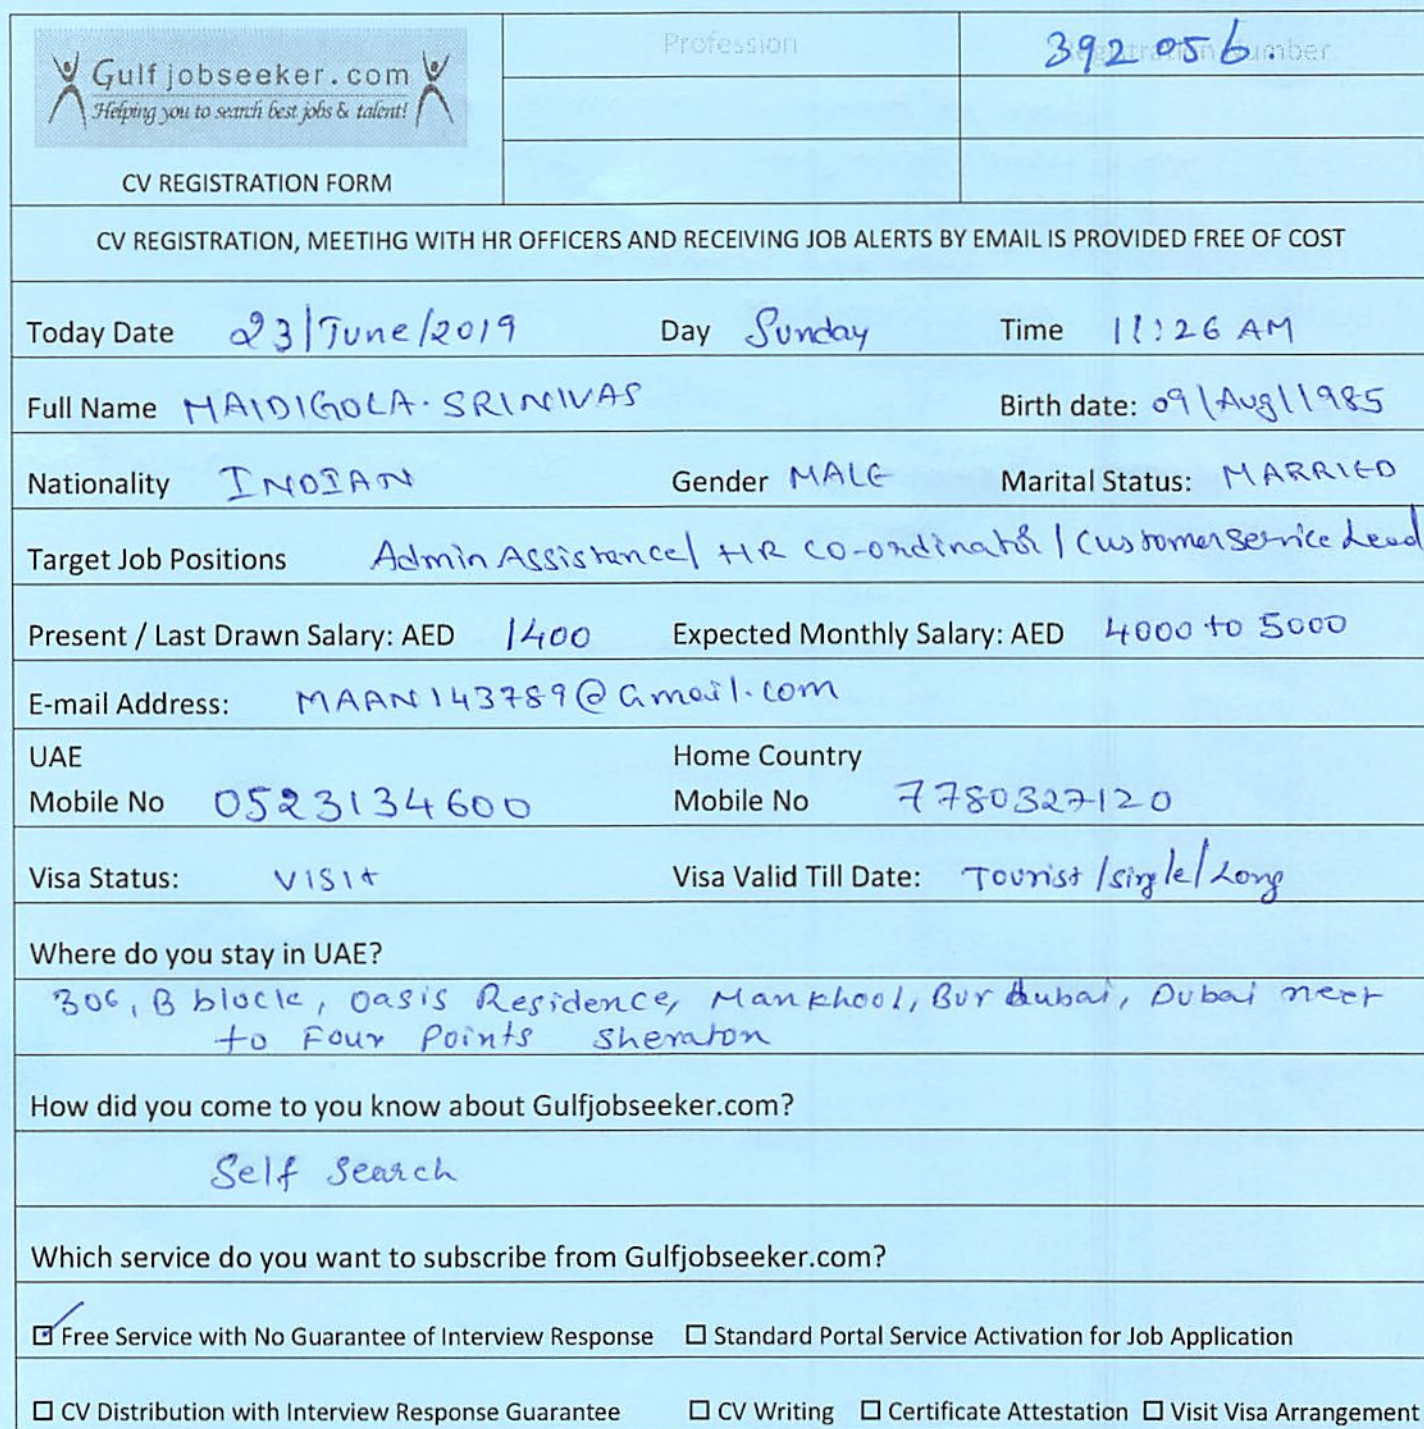 Gulfjobseeker.com
Helping you to search best jobs & talent!
CV REGISTRATION FORM
Profession
Registration Number
392056.
CV REGISTRATION, MEETIHG WITH HR OFFICERS AND RECEIVING JOB ALERTS BY EMAIL IS PROVIDED FREE OF COST
Today Date 23/June/2019 Day Sunday Time 11:26 AM
Full Name MAIDIGOLA. SRINIVAS Birth date: 09/Aug/1985
Nationality INDIAN Gender MALE Marital Status: MARRIED
Target Job Positions Admin Assistance/ HR co-ordinator / Customer service Lead
Present / Last Drawn Salary: AED 1400 Expected Monthly Salary: AED 4000 to 5000
E-mail Address: MAAN143789@Gmail.com
UAE Home Country
Mobile No 0523134600 Mobile No 7780327120
Visa Status: VISIt Visa Valid Till Date: Tourist /single/Long
Where do you stay in UAE?
306, B block, Oasis Residence, Mankhool, Bur dubai, Dubai neer
to Four Points Sheraton
How did you come to you know about Gulfjobseeker.com?
Self Search
Which service do you want to subscribe from Gulfjobseeker.com?
☑ Free Service with No Guarantee of Interview Response ☐ Standard Portal Service Activation for Job Application
☐ CV Distribution with Interview Response Guarantee ☐ CV Writing ☐ Certificate Attestation ☐ Visit Visa Arrangement